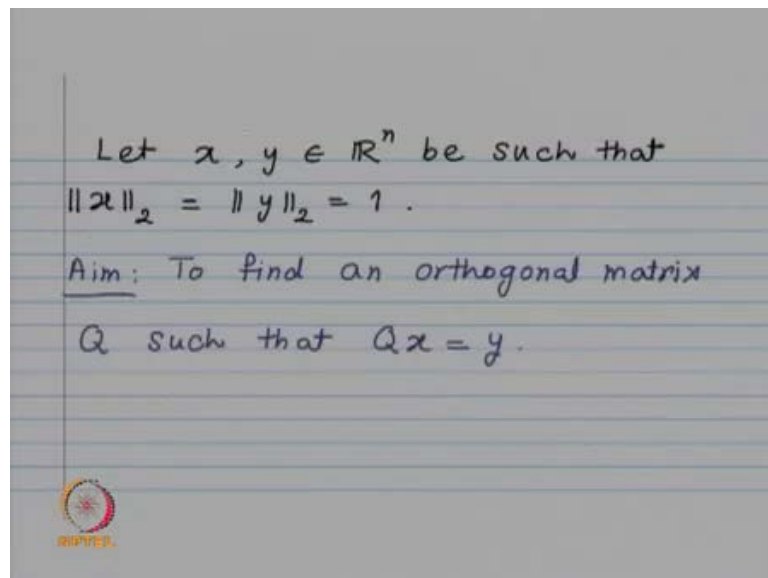 Let x, y ∈ ℝⁿ be such that
‖x‖₂ = ‖y‖₂ = 1 .
Aim: To find an orthogonal matrix
Q such that Qx = y.
NPTEL